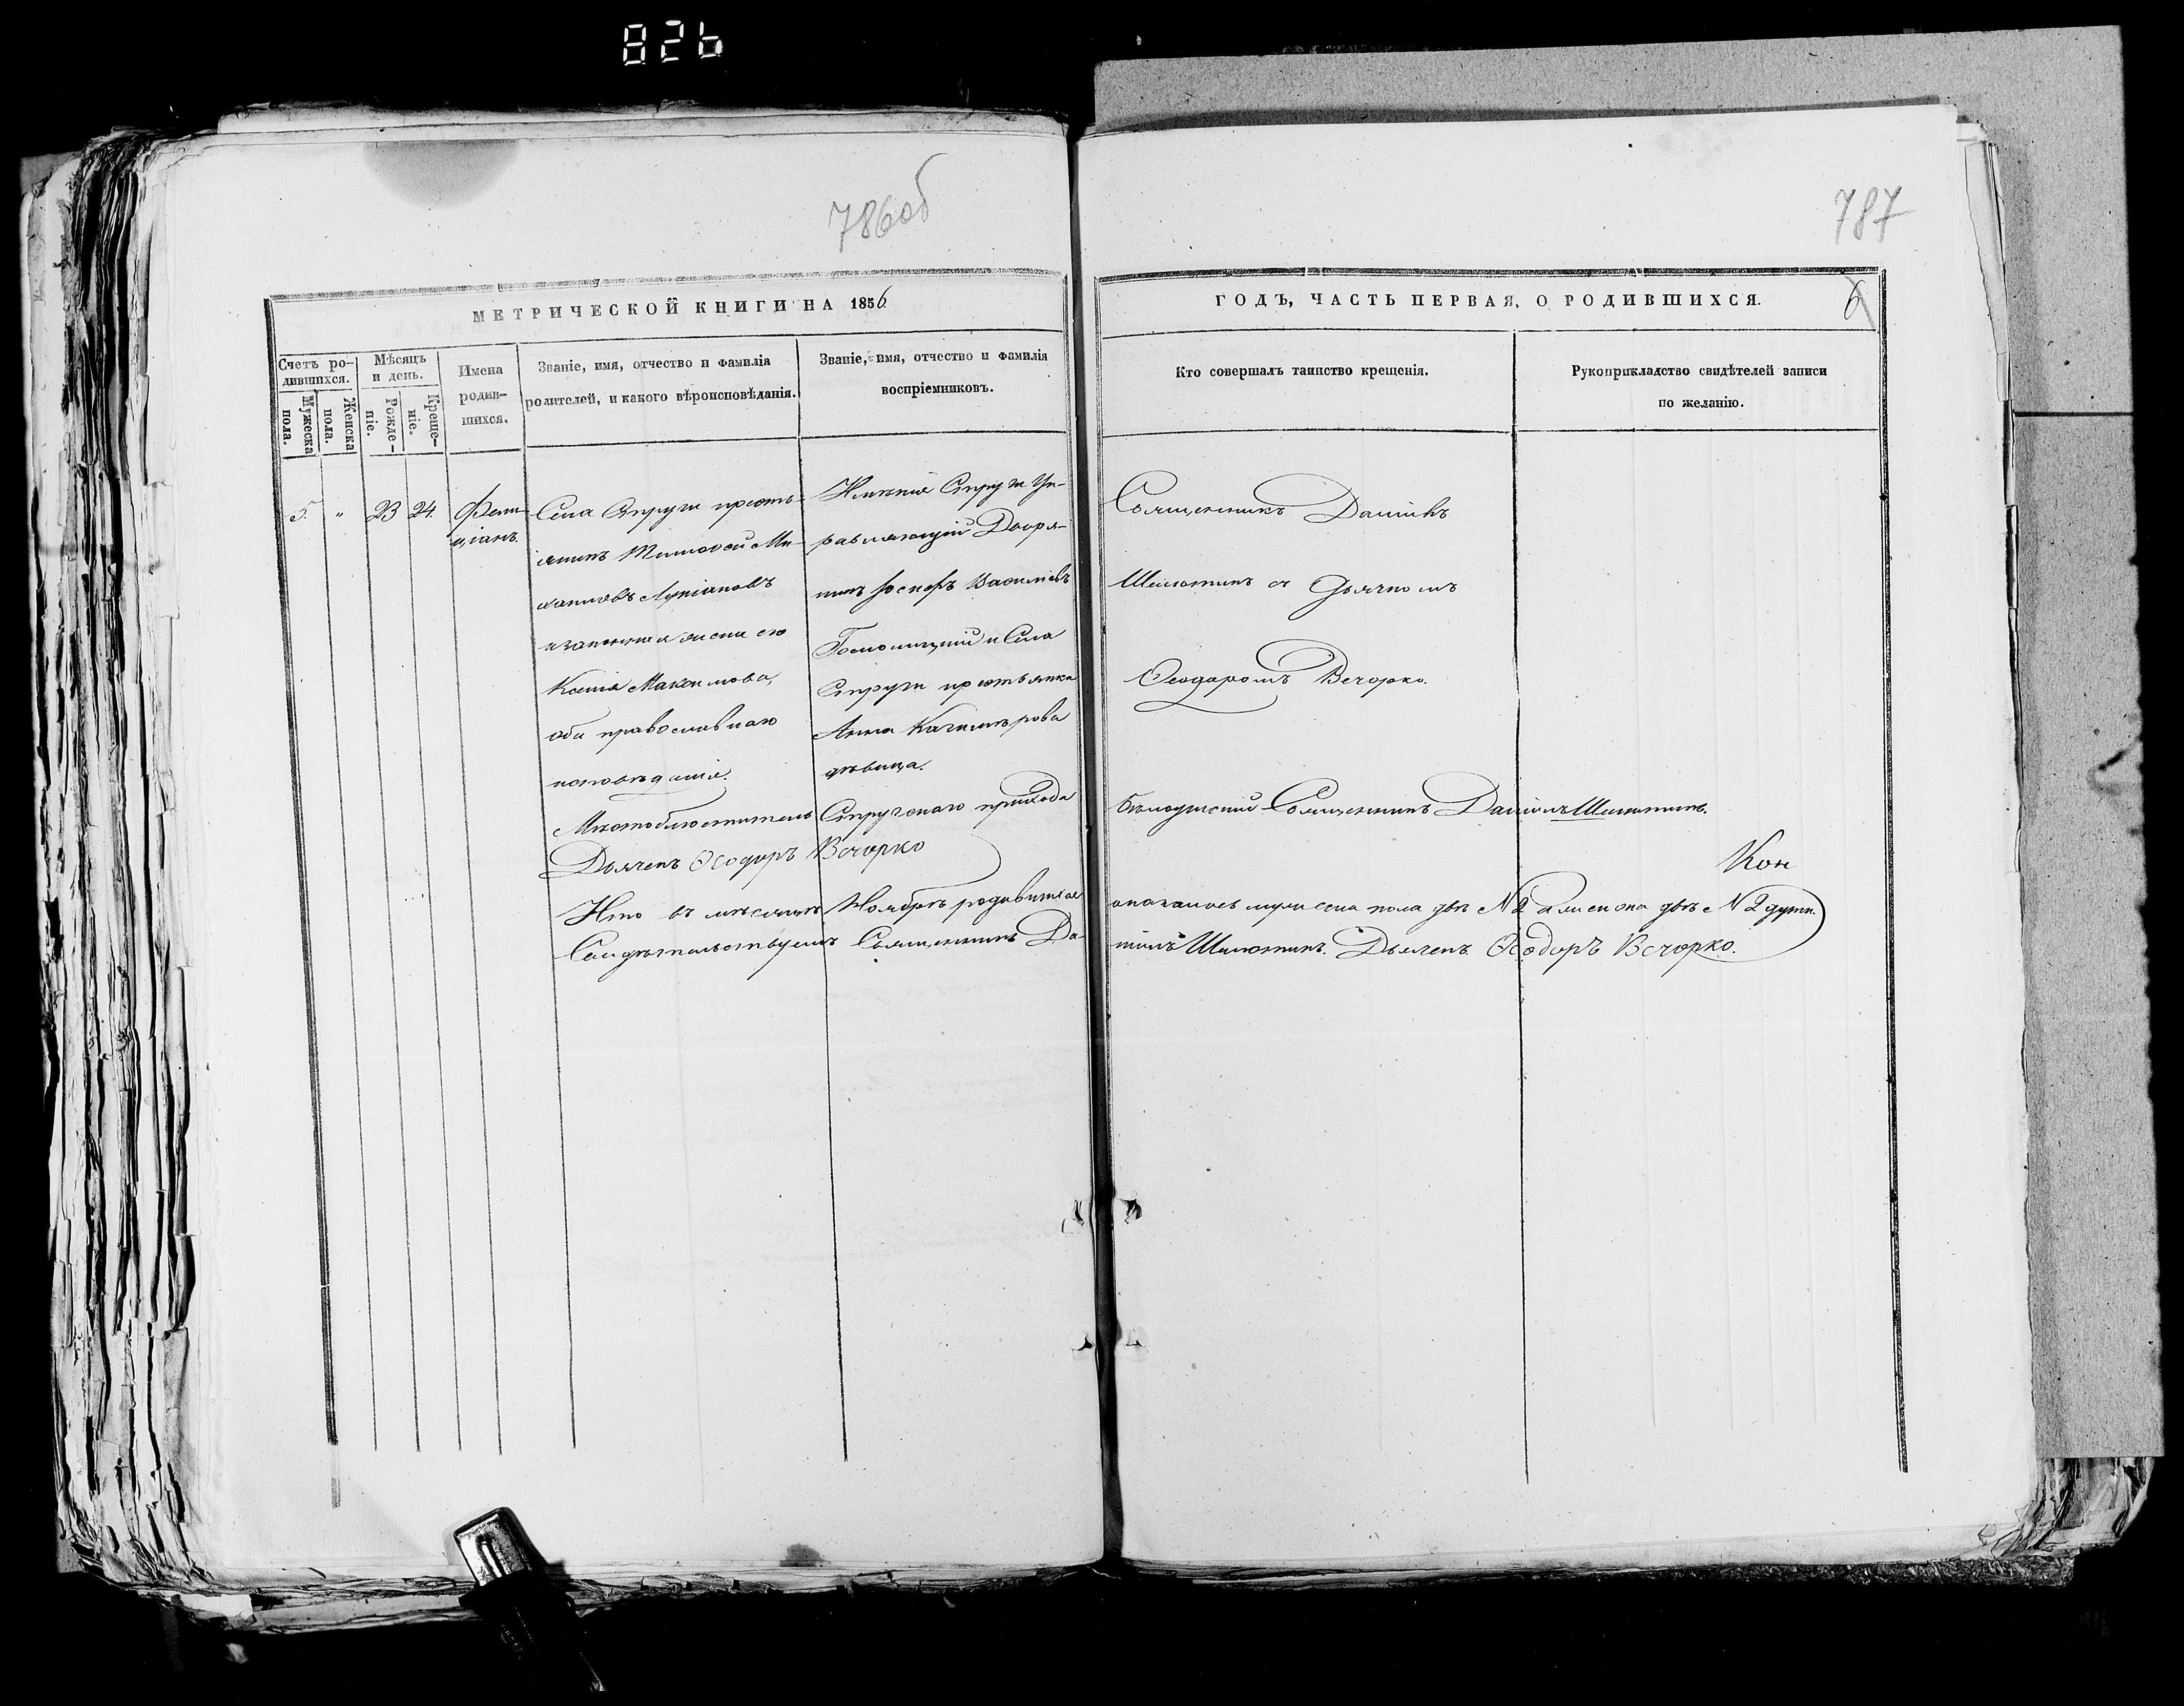 826
786об
787
МЕТРИЧЕСКОЙ КНИГИ НА 1856
ГОДЪ, ЧАСТЬ ПЕРВАЯ, О РОДИВШИХСЯ.
6
Счетъ ро-
дившихся.
Мужеска
пола.
Женска
пола.
Мѣсяцъ
и день.
Рожде-
ніе.
Креще-
ніе.
Имена
родив-
шихся.
Званіе, имя, отчество и фамилія
родителей, и какого вѣроисповѣданія.
Званіе, имя, отчество и фамилія
воспріемниковъ.
Кто совершалъ таинство крещенія.
Рукоприкладство свидѣтелей записи
по желанію.
5. " 23 24.
Фели-
ціанъ.
Села Струги крестья-
янинъ Тимофей Ми-
хаиловъ Лукіановъ
и законная жена его
Ксенія Максимова,
оба православнаго
исповѣданія.
Имѣнія Струги Уп-
равляющій Дворя-
нинъ Іосифъ Васильевъ
и Села
Струги крестьянка
Анна Качимѣрова
дѣвица.
Священникъ Даніилъ
Шелютинъ съ Дьячкомъ
Ѳеодоромъ Вечорко.
Мѣстоблюститель Стружскаго прихода
Священникъ Даніилъ Шелютинъ.
Дьячекъ Ѳеодоръ Вечорко
Кон
Что въ мѣсяцѣ Ноябрѣ родившихся
оказалось мужеска пола двѣ № 2 а женска двѣ № 2 души.
Свидѣтельствуемъ Священникъ Да-
ніилъ Шелютинъ. Дьячекъ Ѳеодоръ Вечорко.